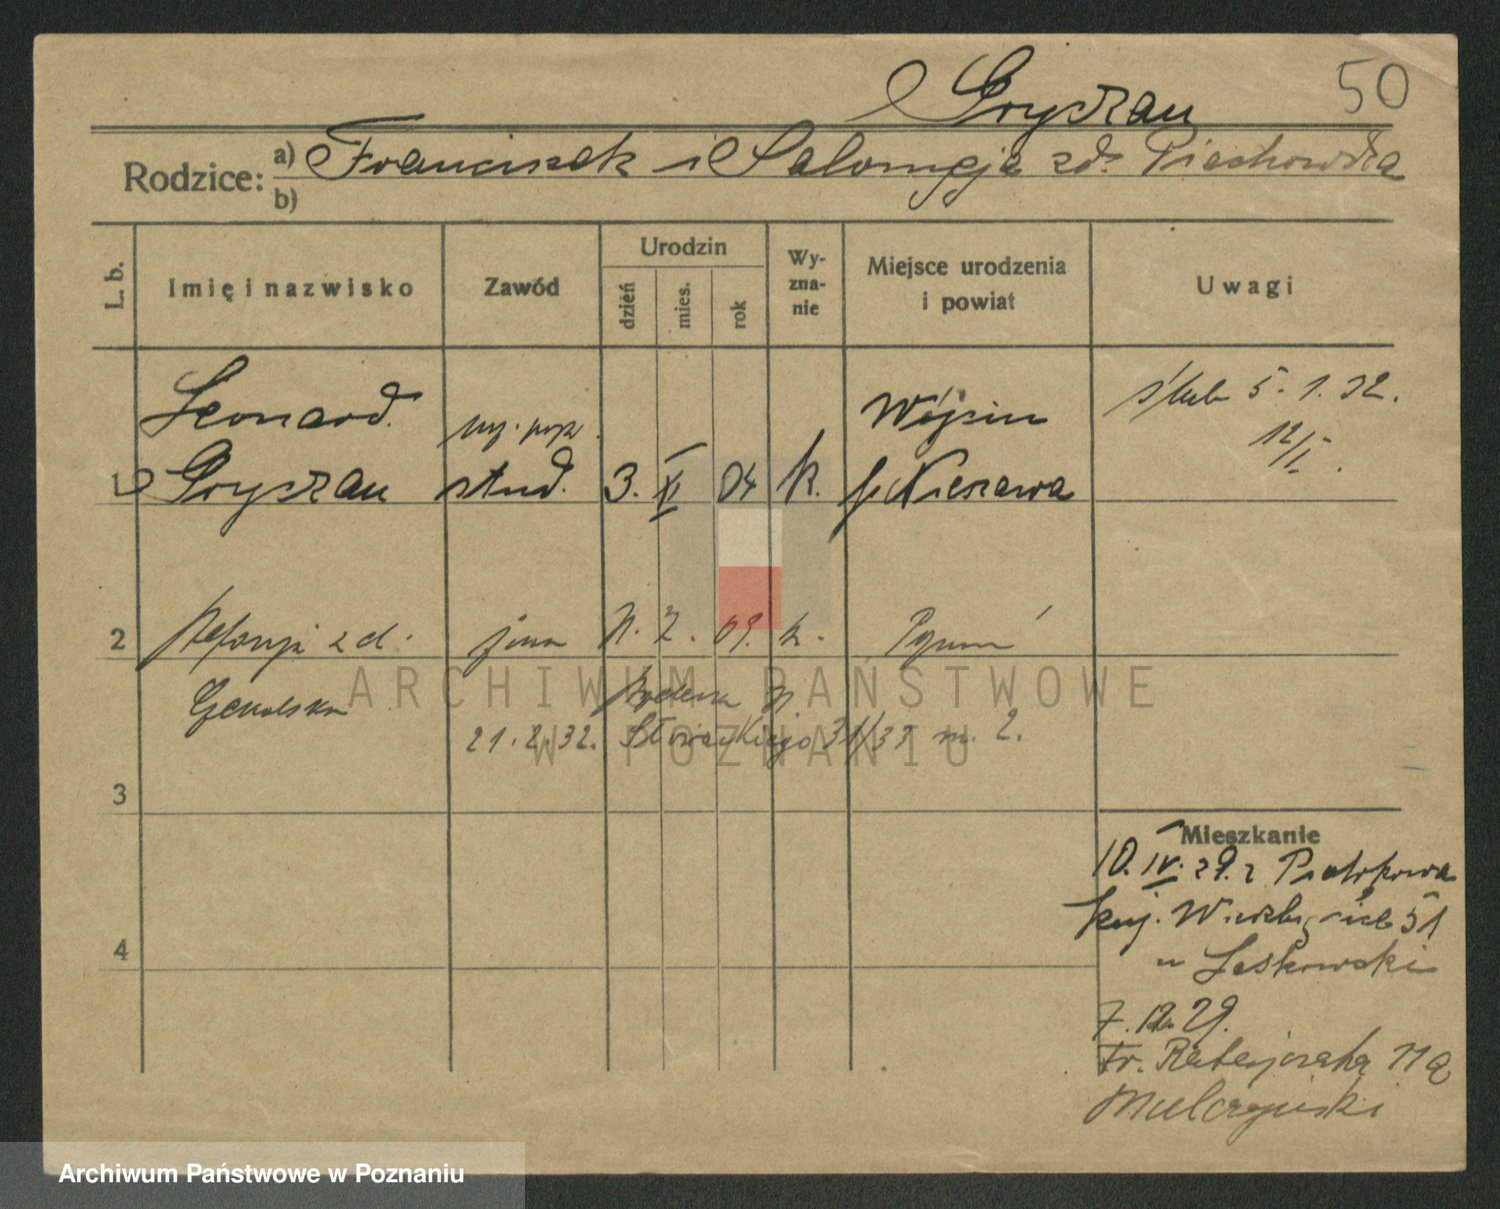 Gryczan
50
Rodzice:
a) Franciszek i Salomeja zd. Piechowska
b)
L. b.
Imię i nazwisko
Zawód
Urodzin
dzień
mies.
rok
Wy-
zna-
nie
Miejsce urodzenia
i powiat
Uwagi
Leonard
Gryczan
stud.
3. XI 04
k.
Wójcin
p. Nieszawa
ślub 5. 1. 32.
12/I.
1
2
zd.
żona
7. 09. k.
Poznań
21. 2. 32. Słowackiego 31/33 m. 2.
3
4
Mieszkanie
10. IV. 29. z Piotrkowa
kuj. Wierzbięcice 51
u Laskowski
7. 12. 29.
Fr. Ratajczaka 11a
ARCHIWUM PAŃSTWOWE
W POZNANIU
Archiwum Państwowe w Poznaniu